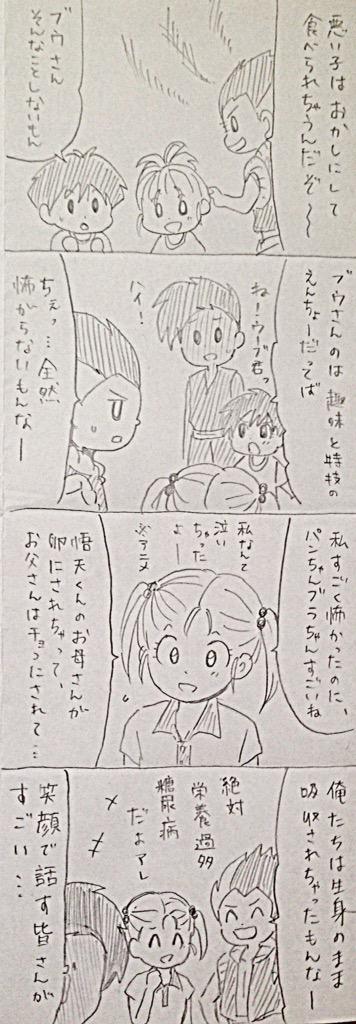 悪い子はおかしにして
食べられちゃうんだぞ〜〜
ブウさん
そんなことしないもん
ブウさんのは趣味と特技の
えんちょーだってば
ね!ウーブ君っ
ハイ!
ちぇっ…全然
怖がらないもんなー
私すごく怖かったのに、
パンちゃんブラちゃんすごいね
私なんて
泣い
ちゃった
よー
※アニメ
悟天くんのお母さんが
卵にされちゃって、
お父さんはチョコにされて…
俺たちは生身のまま
吸収されちゃったもんなー
絶対
栄養過多
糖尿病
だよアレ
笑顔で話す皆さんが
すごい…